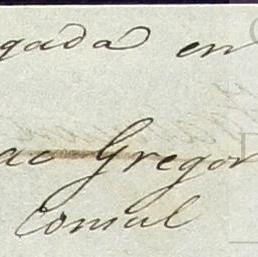 gada en
ac Gregor
Consul